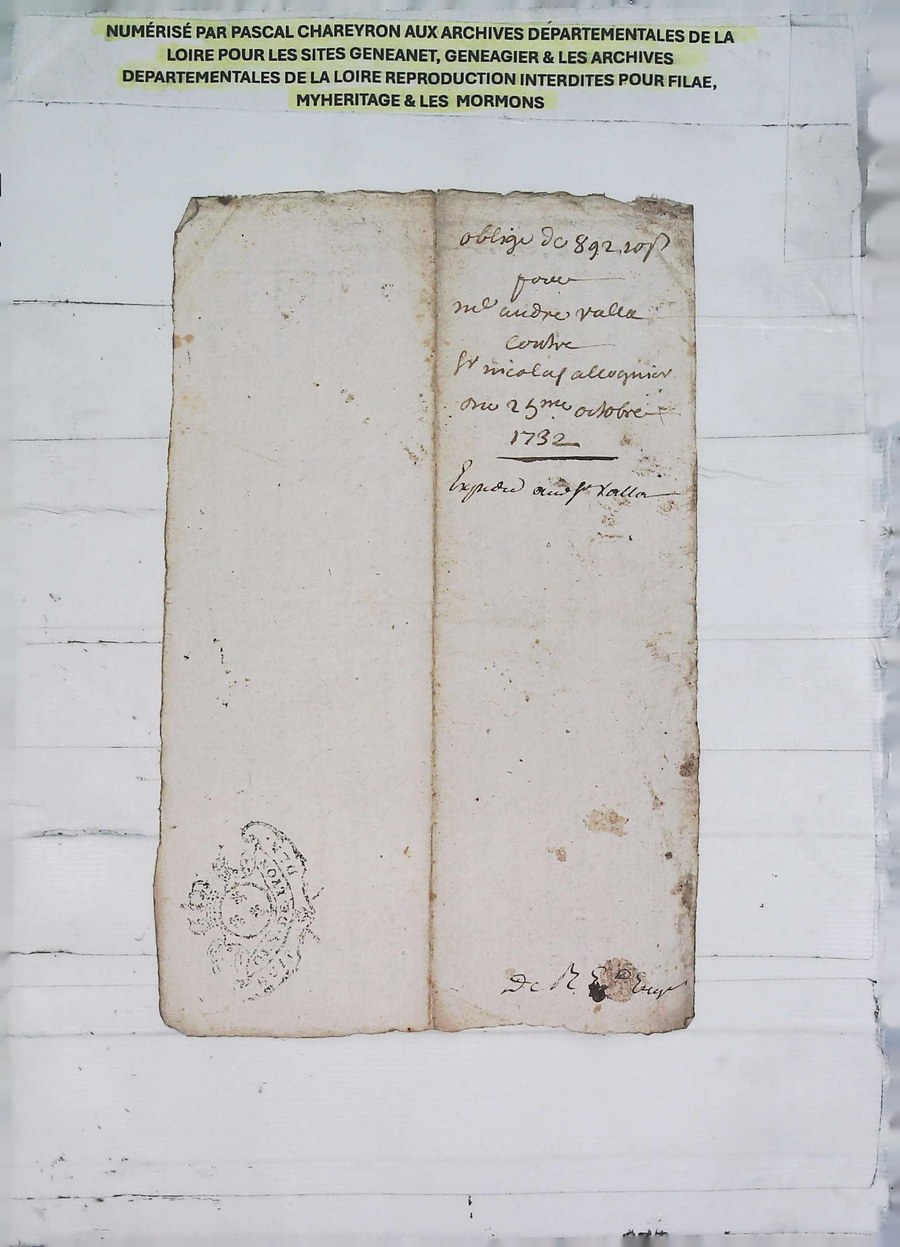 NUMÉRISÉ PAR PASCAL CHAREYRON AUX ARCHIVES DÉPARTEMENTALES DE LA
LOIRE POUR LES SITES GENEANET, GENEAGIER & LES ARCHIVES
DEPARTEMENTALES DE LA LOIRE REPRODUCTION INTERDITES POUR FILAE,
MYHERITAGE & LES MORMONS
oblige de 892 10s
pour
me andre valla
contre
Sr nicolas
du 25me octobre
1732
Expedié audSr Valla
De